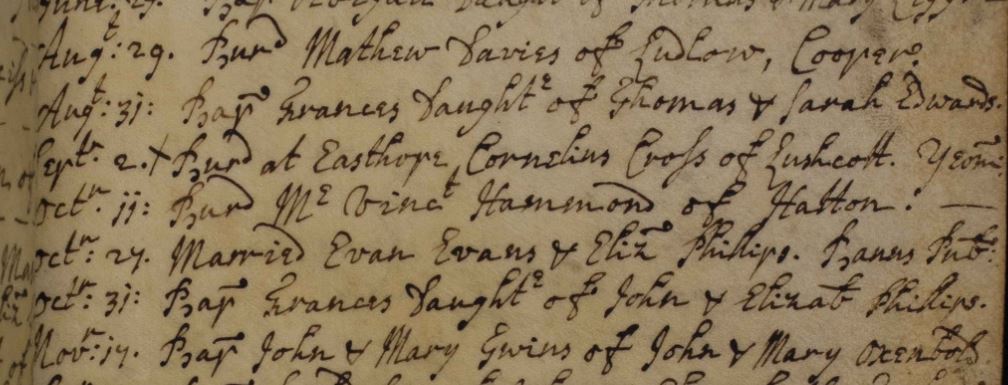 June: 29. Bap Morgan Daught of Thomas & Mary
Augt: 29. Burd Mathew Davies of Ludlow, Cooper.
Augt: 31: Bap Frances Daughtr of Thomas & Sarah Edwards
Septr. 2. + Burd at Easthope Cornelius Cross of Lushcott. Yeom.
Octr. 11: Burd Mr Vinct Hammond of Hatton. —
Octr: 27. Married Evan Evans & Eliz Phillips. Banns Pub:
Octr: 31: Bap Frances Daughtr of John & Elizab Phillips.
Novr: 17. Bap John & Mary Twins of John & Mary Oxenbold